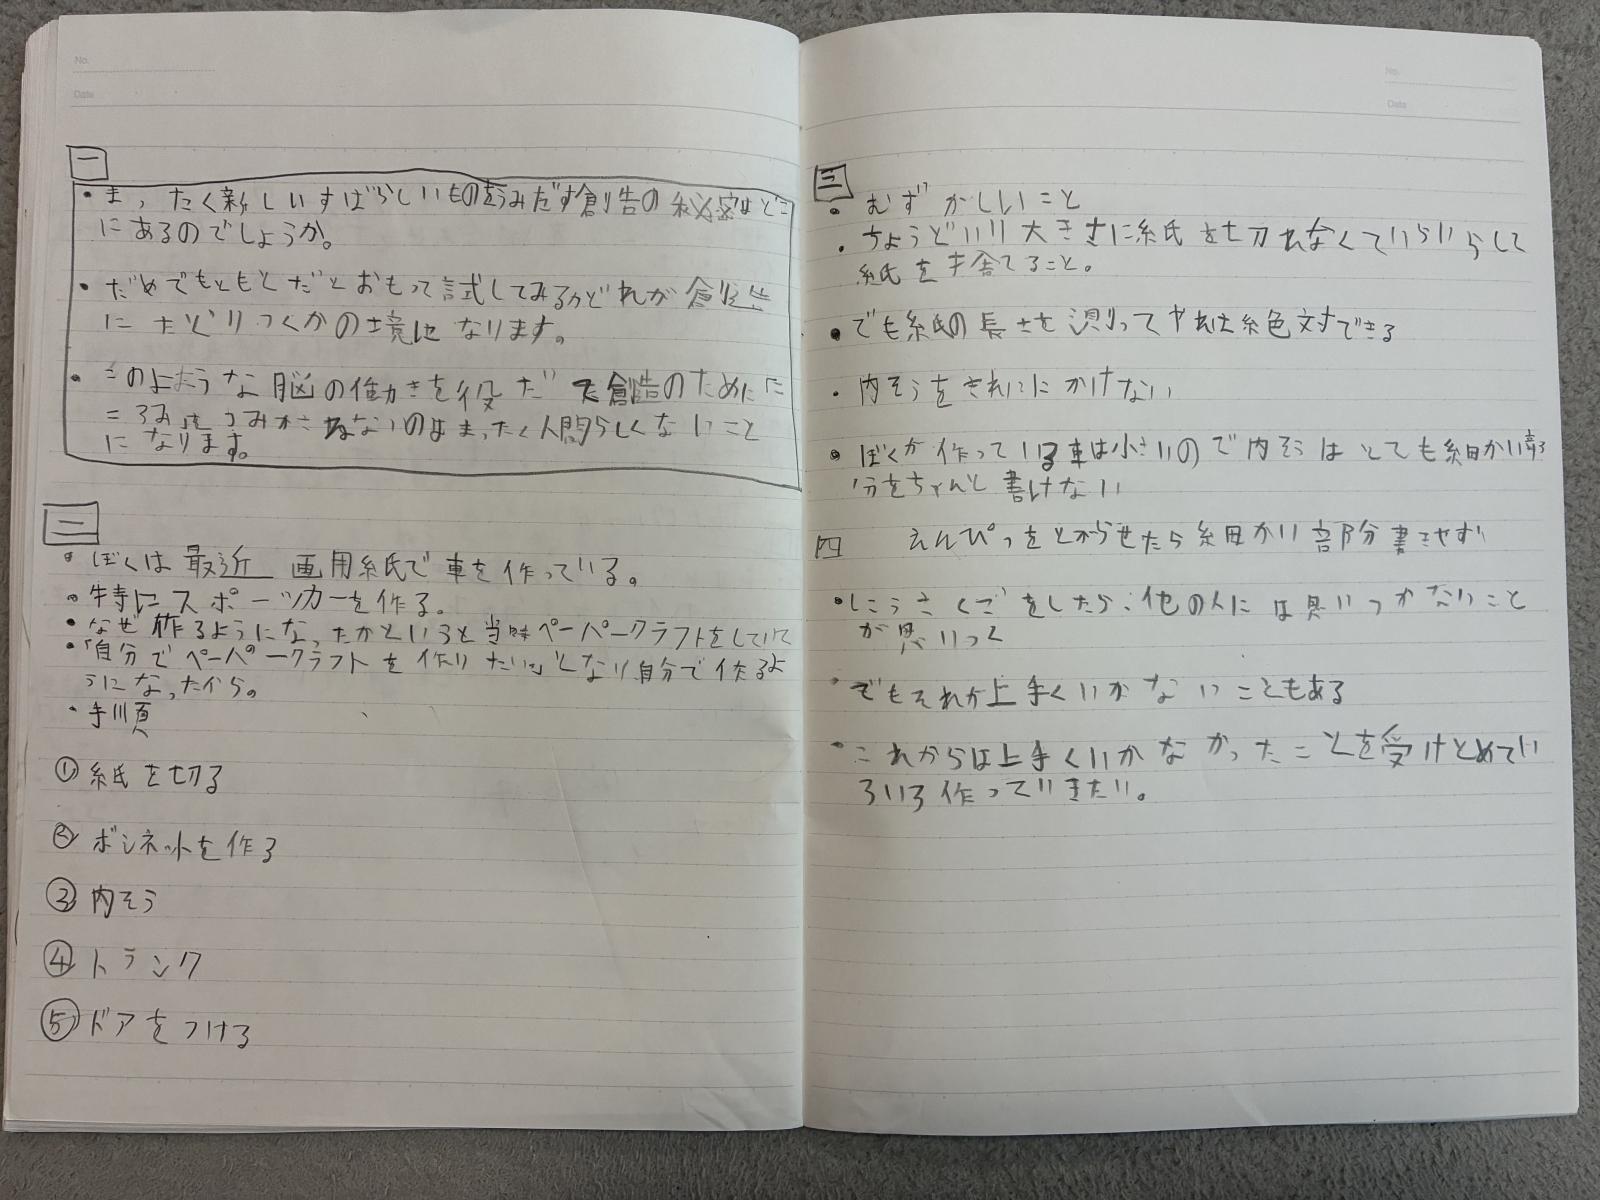 No.
Date
一
・まったく新しいすばらしいものをうみだす創造の秘密はどこ
にあるのでしょうか。
・だめでもともとだとおもって試してみるかどれが創造
にたどりつくかの境になります。
・このような脳の働きを役だて創造のために
つみかさねないのはまったく人間らしくないこと
になります。
二
・ぼくは最近 画用紙で車を作っている。
・特にスポーツカーを作る。
・なぜ作るようになったかというと当時ペーパークラフトをしていて
・「自分でペーパークラフトを作りたい。」となり自分で作るよ
うになったから。
・手順
①紙を切る
②ボンネットを作る
③内そう
④トランク
⑤ドアをつける
No.
Date
三
・むずかしいこと
・ちょうどいい大きさに紙を切れなくていらいらして
紙を捨てること。
・でも紙の長さを測ってやれば絶対できる
・内そうをきれいにかけない
・ぼくが作っている車は小さいので内そうはとても細かい部
分をちゃんと書けない
四 えんぴつをとがらせたら細かい部分書きやすい
・しこうさくごをしたら、他の人には思いつかないこと
が思いつく
・でもそれが上手くいかないこともある
・これからは上手くいかなかったことを受けとめてい
ろいろ作っていきたい。